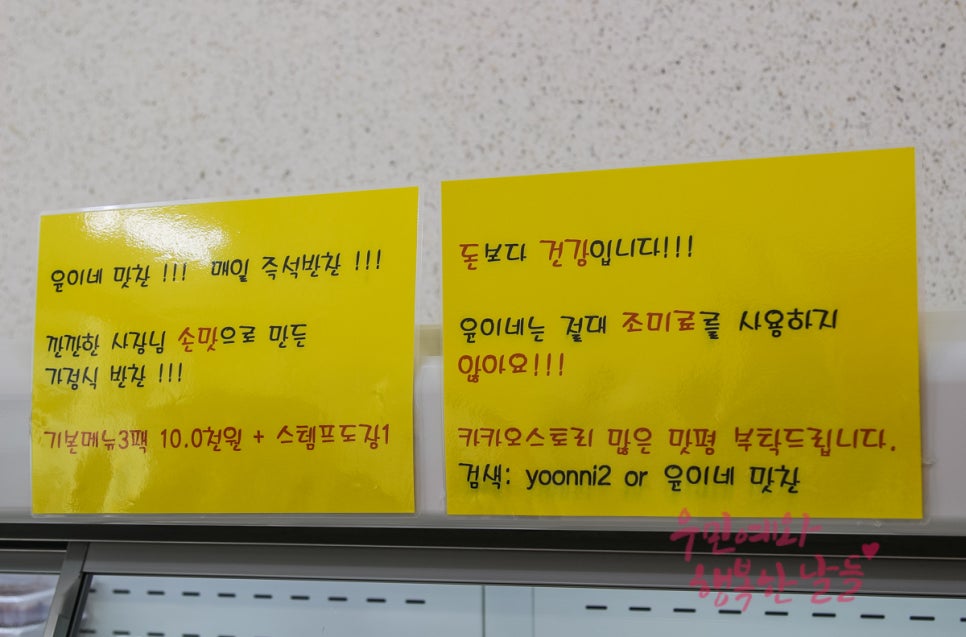 윤이네 맛찬 !!! 매일 즉석반찬 !!!
깐깐한 사장님 손맛으로 만든
가정식 반찬 !!!
기본메뉴3팩 10.0천원 + 스템프도장1
돈보다 건강입니다!!!
윤이네는 겉대 조미료를 사용하지
않아요!!!
카카오스토리 많은 맛평 부탁드립니다.
검색: yoonni2 or 윤이네 맛찬
우민예와
행복한 날들